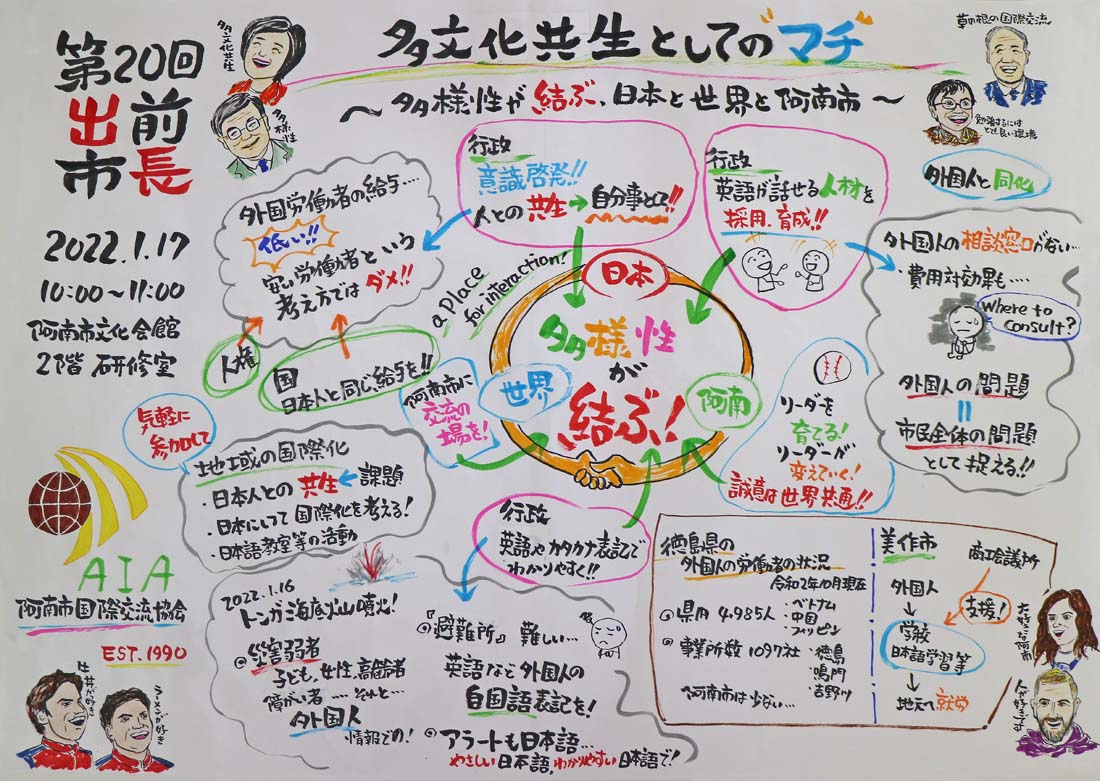 第20回
出前
市長
2022.1.17
10:00〜11:00
阿南市文化会館
2階 研修室
多文化共生
多様性
多文化共生としての"マチ"
〜多様性が結ぶ、日本と世界と阿南市〜
草の根の国際交流
勉強するには
とても良い環境
外国人と同化
行政
意識啓発!!
人との共生→自分事として!!
行政
英語が話せる人材を
採用、育成!!
外国労働者の給与....
低い!!
安い労働者という
考え方ではダメ!!
人権
国
日本人と同じ給与を!!
a place
for interaction!
阿南市に
交流の
場を!
日本
多様性
が
結ぶ!!
世界
阿南
リーダーを
育てる!
リーダーが
変えていく!
誠意は世界共通!!
外国人の相談窓口がない...
・費用対効果も....
Where to
consult?
外国人の問題
=
市民全体の問題
として捉える!!
気軽に
参加して
地域の国際化
・日本人との共生←課題
・日本にいて国際化を考える!
・日本語教室等の活動
行政
英語やカタカナ表記で
わかりやすく!!
AIA
阿南市国際交流協会
EST.1990
丼が好き
ラーメンが好き
2022.1.16
トンガ海底火山噴火!
災害弱者
子ども、女性、高齢者
障がい者....それと...
外国人
情報での!
『避難所』難しい...
英語など外国人の
自国語表記を!
アラートも日本語...
やさしい日本語、わかりやすい日本語で!
徳島県の
外国人の労働者の状況
令和2年10月現在
県内 4,985人
・ベトナム
・中国
・フィリピン
事業所数 1097社
・徳島
・鳴門
・吉野川
阿南市は少ない...
美作市
商工会議所
外国人
↓
支援!
学校
日本語学習等
↓
地元へ就労
大好きな阿南
人が好きです